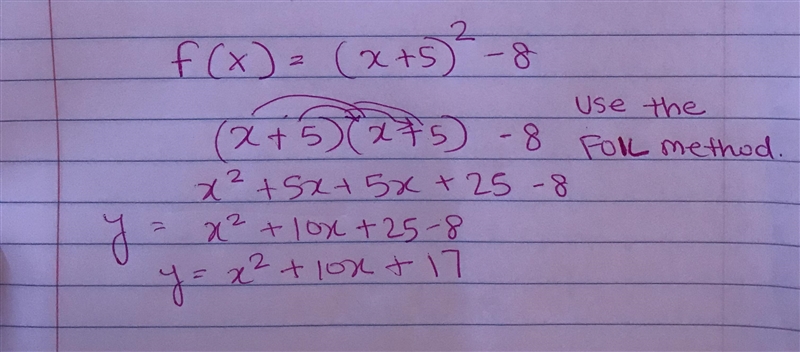 f(x) = (x+5)² - 8
(x + 5)(x+5) - 8
Use the
FOIL method.
x² + 5x + 5x + 25 - 8
y = x² + 10x + 25 - 8
y = x² + 10x + 17